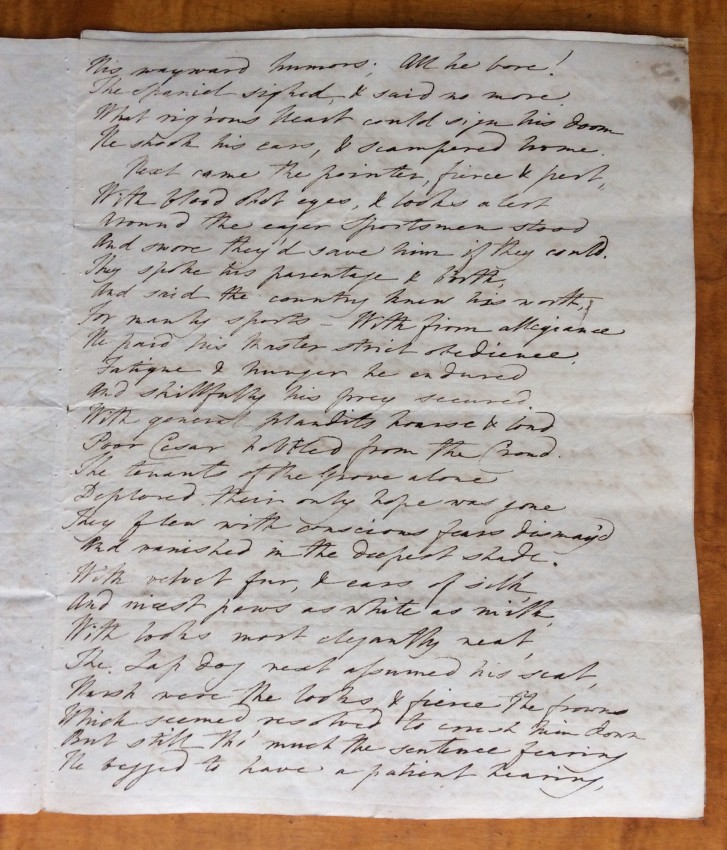 His wayward humors; All he bore!
The Spaniel sighed, & said no more.
What rig'rous heart could sign his doom
He shook his ears, & scampered home.
Next came the pointer, fierce & pert,
With blood shot eyes, & looks alert
Around the eager Sportsmen stood
And swore they'd save him if they could.
They spoke his parentage & birth,
And said the country knew his worth,
For manly sports – With firm allegiance
He paid his Master strict obedience.
Fatigue & hunger he endured
And skillfully his prey secured
With general plaudits hoarse & loud
Poor Cesar hobbled from the Crowd.
The tenants of the Grove alone
Deplored their only hope was gone
They flew with conscious fears dismay'd
And vanished in the deepest shade.
With velvet fur, & ears of silk,
And nicest paws as white as milk,
With looks most elegantly neat,
The Lap dog next assumed his seat,
Harsh were the looks & fierce the frowns
Which seemed resolved to crush him down
But still tho' much the sentence fearing
He begged to have a patient hearing,